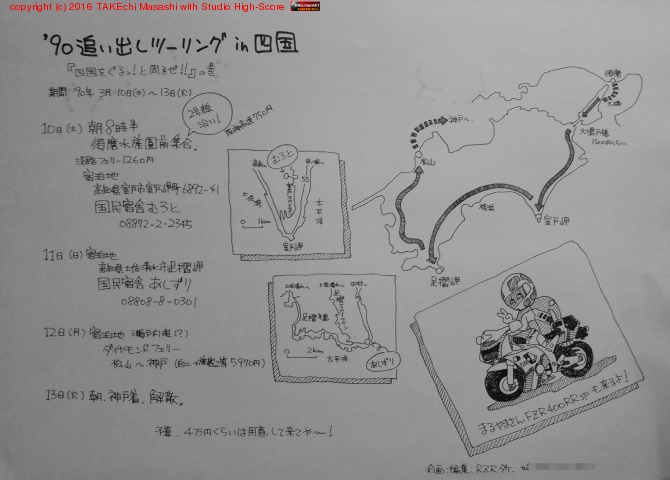 copyright (c) 2016 TAKEchi Masashi with Studio High-Score
'90 追い出しツーリング in 四国
『四国をぐるっ!と周るぜ!!』の巻
期間 '90年 3月10日(土)〜13日(火)
10日(土) 朝8時半
須磨水族園前集合。
2号線沿い!
淡路フェリー1260円
宿泊地
高知県室戸市室戸岬町6892-41
国民宿舎むろと
08872-2-2345
11日(日) 宿泊地
高知県土佐清水市足摺岬
国民宿舎 あしずり
08808-8-0301
12日(月) 宿泊地 瀬戸内海(?)
ダイヤモンドフェリー
松山〜神戸
5970円)
13日(火) 朝、神戸着、解散。
予算… 4万円くらいは用意して来てヤ〜!
むろと
55
土佐湾
太平洋
1km
室戸岬
土佐清水へ
中村へ
足摺半島
足摺スカイライン
2km
太平洋
あしずり
神戸へ
須磨
大磯
松山
大鳴門橋
桂浜
室戸岬
足摺岬
まるやまさん FZR400RRSPも来るよ!
企画・編集: